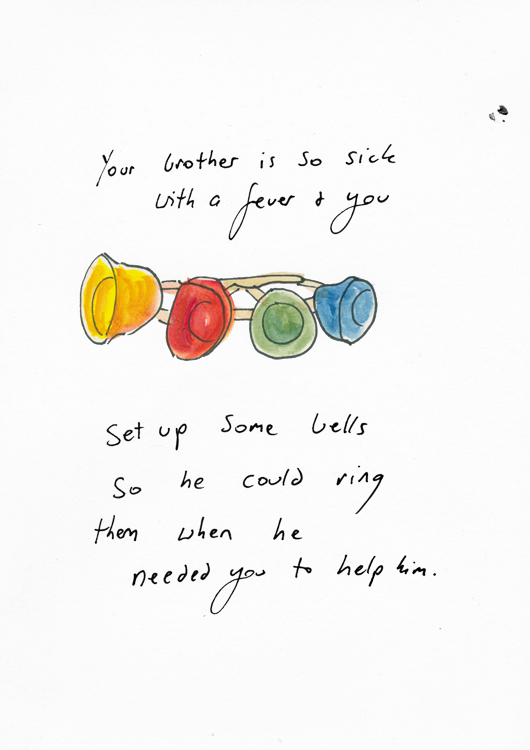 Your brother is so sick
with a fever & you
Set up some bells
So he could ring
them when he
needed you to help him.